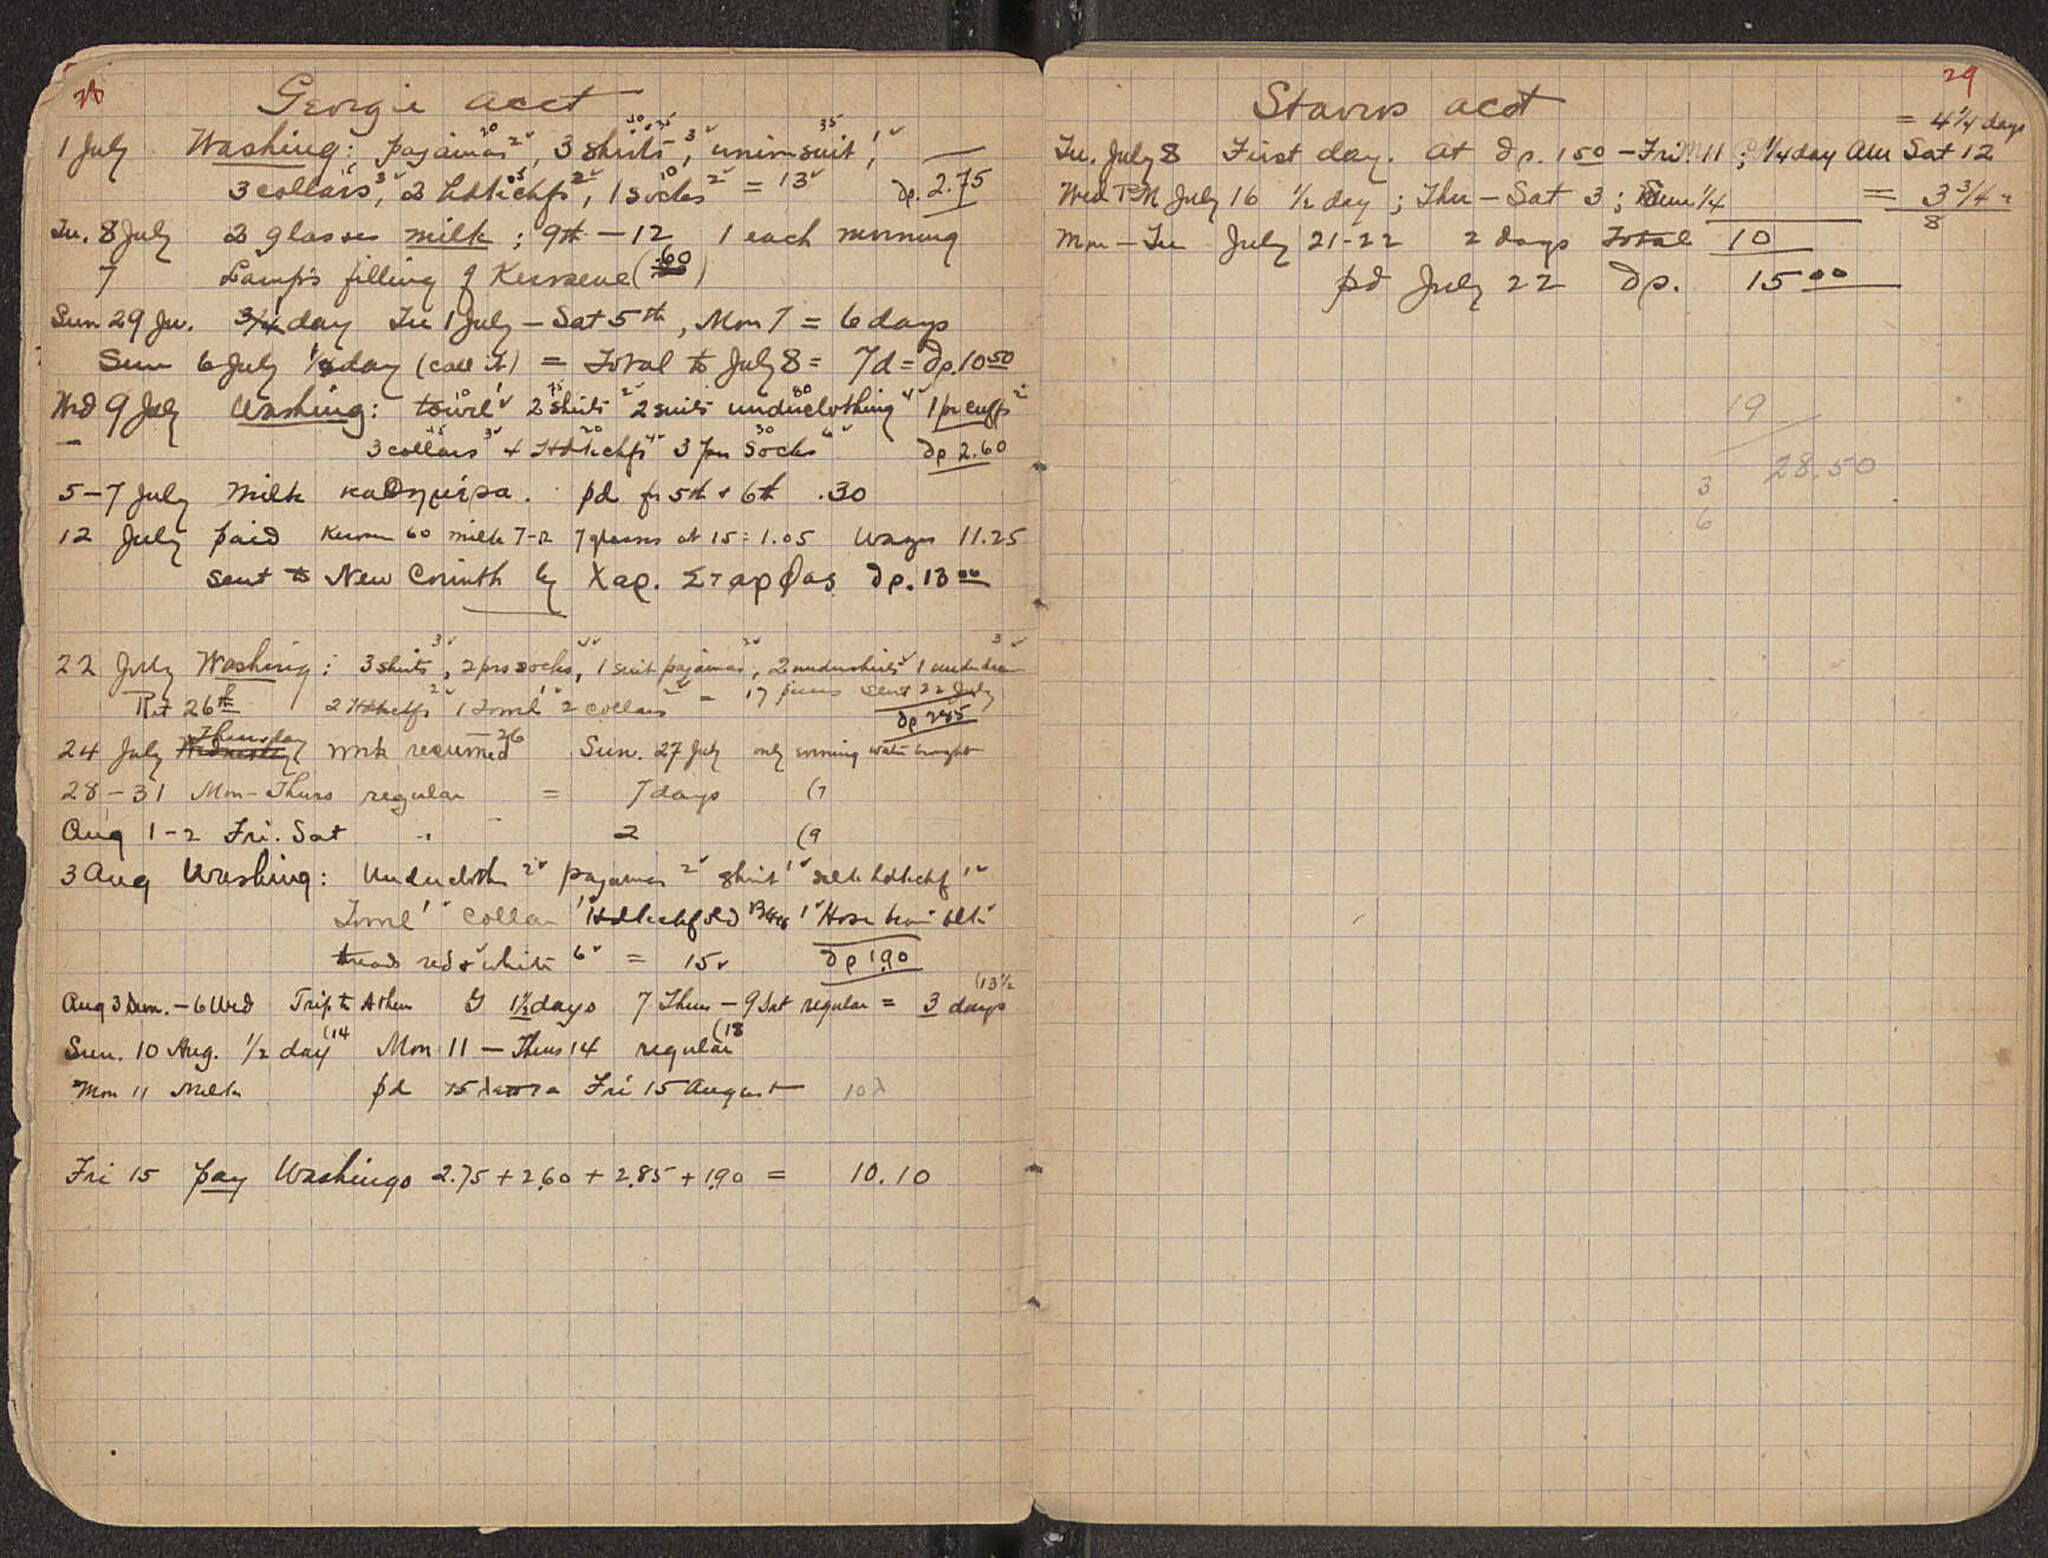 28
Georgie acct
1 July Washing: pajamas 2, 3 shirts 3, unionsuit 1,
3 collars 3, 2 hdkchfs 2, 1 socks 2 = 13 δρ. 2.75
Tu. 8 July 2 glasses milk; 9th – 12 1 each morning
7 Lamps filling of Kerosene (.60)
Sun 29 Ju. 3/4 day Tu 1 July – Sat 5th, Mon 7 = 6 days
Sun 6 July 1/4 day (call it) = Total to July 8 = 7d = δρ. 10 50
Wed 9 July Washing: towel 1 2 shirts 2 2 suits underclothing 4 1 pr cuffs 2
3 collars 3 4 Hdkchfs 4 3 prs Socks 6 δρ 2.60
5–7 July Milk καθημέρα. pd for 5th & 6th .30
12 July paid Kerosene 60 milk 7–12 7 glasses at 15 = 1.05 Wages 11.25
sent to New Corinth by Χαρ. Σταρφας δρ. 13 00
22 July Washing: 3 shirts 3, 2 prs socks 4, 1 suit pajamas 2, 2 undershirts 1 underdrawers 3
Ret 26th 2 Hdkchfs 2 1 Towel 1 2 collars 2 = 17 pieces sent 22 July
δρ 2.85
24 July Wednesday Thursday work resumed – 26 Sun. 27 July only evening water brought
28–31 Mon–Thurs regular = 7 days (7
Aug 1–2 Fri. Sat " 2 (9
3 Aug Washing: Undercloth 2 pajamas 2 shirt 1 silk hdkchf 1
Towel 1 collar 1 Hdkchf Rd 1 Hose
red & white 6 = 15 δρ 1.90
Aug 3 Sun. – 6 Wed Trip to Athens G 1 1/2 days 7 Thurs – 9 Sat regular = 3 days (13 1/2
Sun. 10 Aug. 1/2 day (14 Mon 11 – Thurs 14 regular (18
Mon 11 Milk pd 15 λεπτα Fri 15 August 10λ
Fri 15 pay Washings 2.75 + 2.60 + 2.85 + 1.90 = 10.10
29
Stavros acct
= 4 1/4 days
Tu. July 8 First day. at δρ. 1 50 – Fri 11; 1/4 day AM Sat 12
Wed PM July 16 1/2 day; Thu – Sat 3; Sun 1/4 = 3 3/4 "
8
Mon – Tu July 21–22 2 days Total 10
pd July 22 δρ. 15 00
19
28.50
3
6